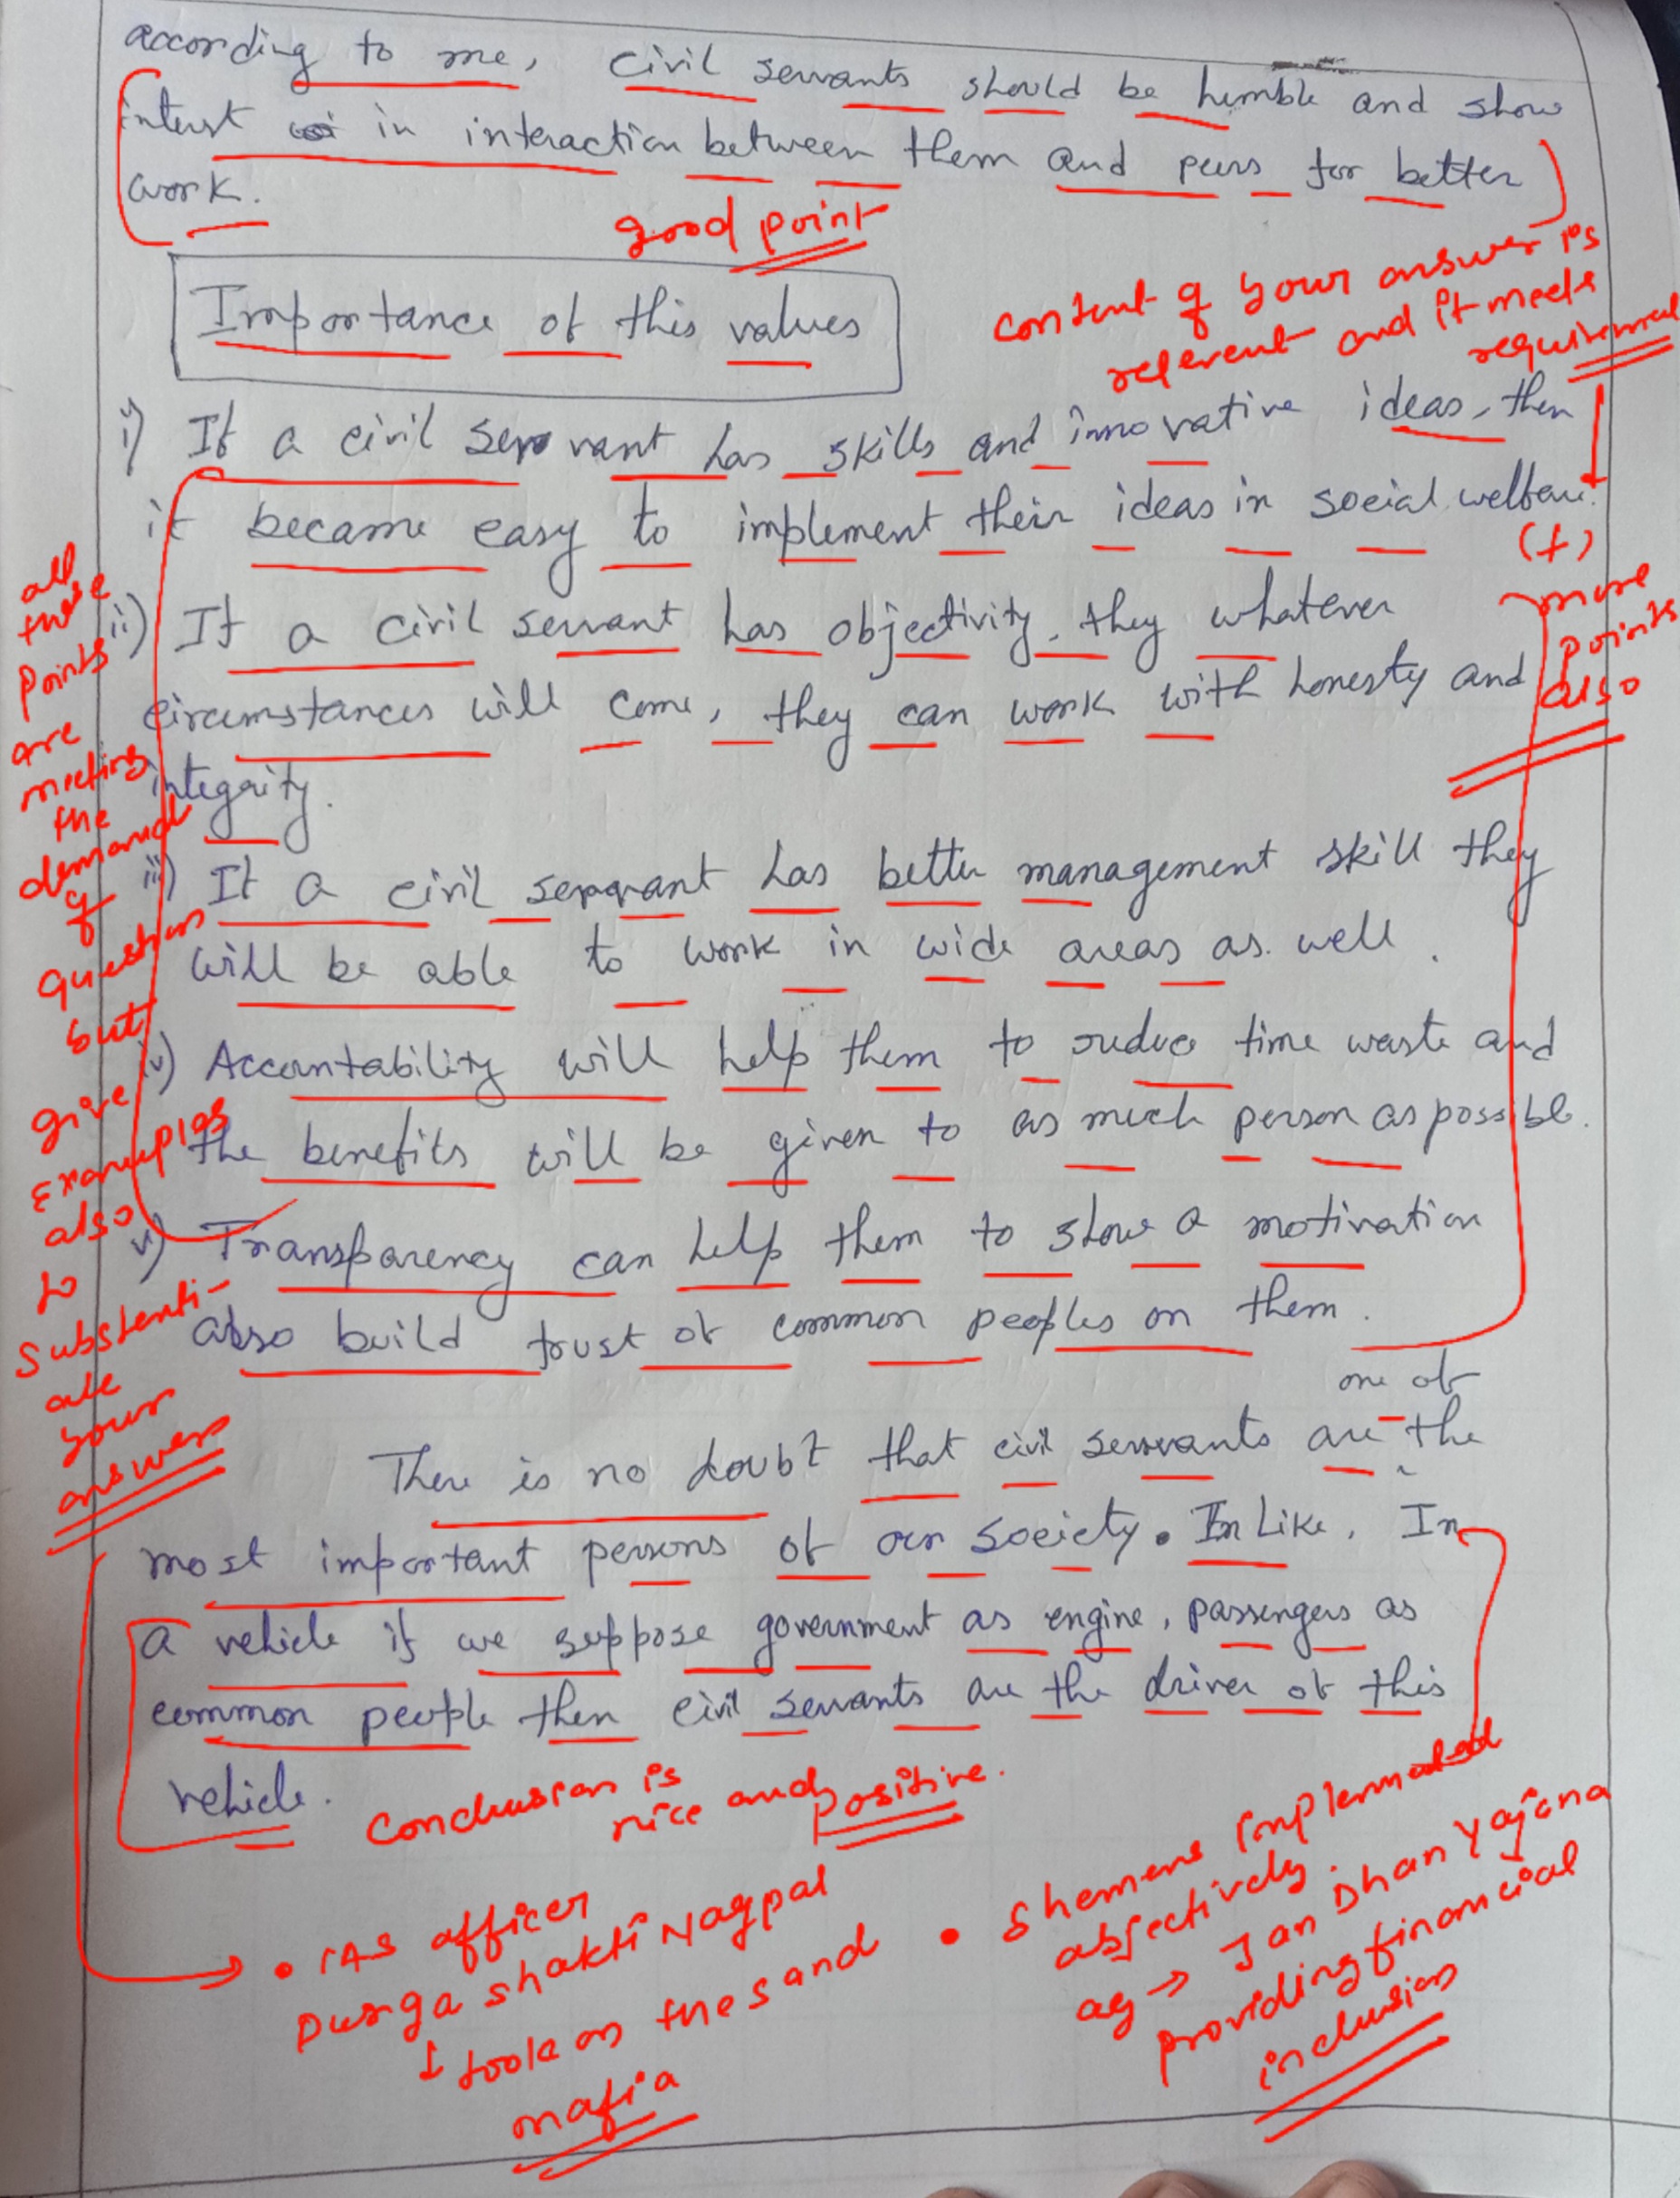 according to me, civil servants should be humble and show
interst in interaction between them and peers for better
work.
good point
Importance of this values
content of your answer is
relevent and it meets
requirement
i) If a civil servant has skills and innovative ideas, then
it became easy to implement their ideas in social welfare.
(+)
more
points
also
ii) If a civil servant has objectivity, they whatever
circumstances will come, they can work with honesty and
integrity.
iii) If a civil servant has better management skill they
will be able to work in wide areas as well.
iv) Accountability will help them to reduce time waste and
the benefits will be given to as much person as possible.
v) Transparency can help them to show a motivation
also build trust of common peoples on them.
all
these
points
are
meeting
the
demand
of
question
but
give
examples
also
to
substenti-
ate
your
answer
one of
There is no doubt that civil servants are the
most important persons of our society. In Like, In
a vehicle if we suppose government as engine, passengers as
common people then civil servants are the driver of this
vehicle.
Conclusion is
nice and positive.
• IAS officer
Durga shakti Nagpal
↓ took on the sand
mafia
• Shemens implemented
objectively.
eg → Jan Dhan Yajona
providing financial
inclusion